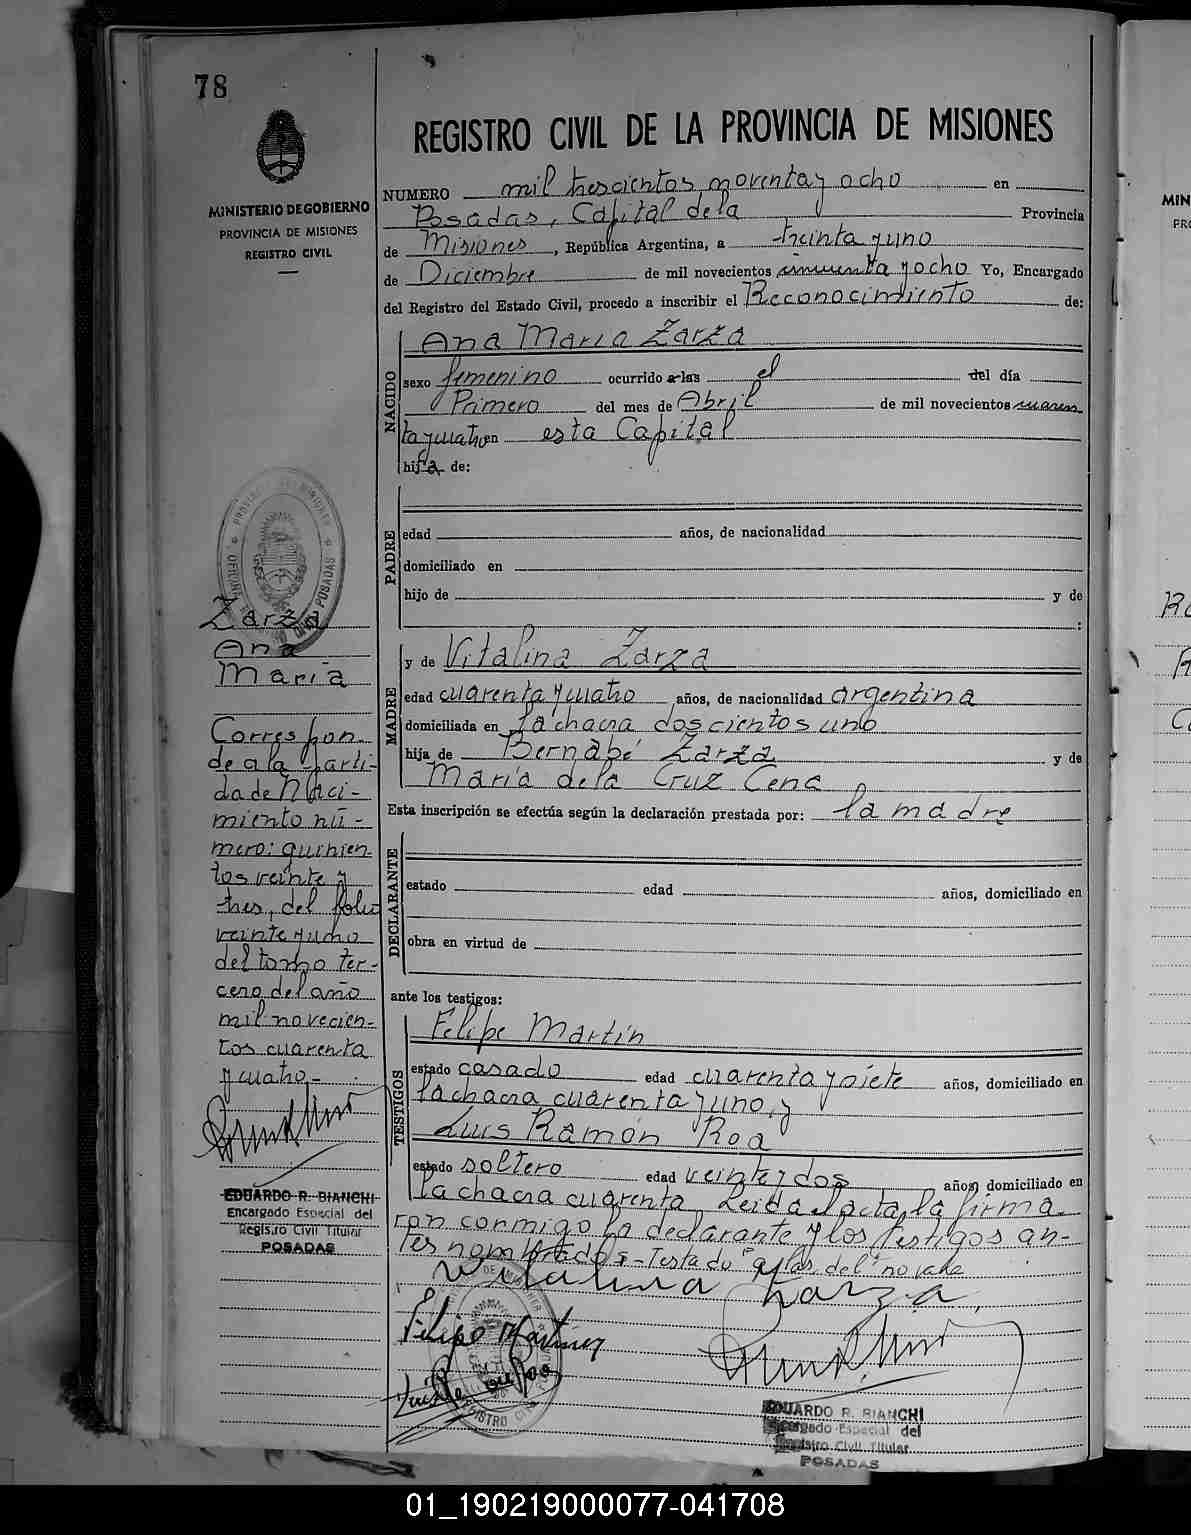 78
MINISTERIO DE GOBIERNO
PROVINCIA DE MISIONES
REGISTRO CIVIL
REGISTRO CIVIL DE LA PROVINCIA DE MISIONES
NUMERO mil trescientos noventa y ocho en
Posadas, Capital de la Provincia
de Misiones, República Argentina, a treinta y uno
de Diciembre de mil novecientos cincuenta y ocho Yo, Encargado
del Registro del Estado Civil, procedo a inscribir el Reconocimiento de:
NACIDO
Ana María Zarza
sexo femenino ocurrido a las el del día
Primero del mes de Abril de mil novecientos cuaren
ta y cuatro en esta Capital
hija de:
PADRE
edad años, de nacionalidad
domiciliado en
hijo de y de
:
MADRE
y de Vitalina Zarza
edad cuarenta y cuatro años, de nacionalidad argentina
domiciliada en la chacra doscientos uno
hija de Bernabé Zarza y de
María de la Cruz Cena
Esta inscripción se efectúa según la declaración prestada por: la madre
DECLARANTE
estado edad años, domiciliado en
obra en virtud de
ante los testigos:
TESTIGOS
Felipe Martín
estado casado edad cuarenta y siete años, domiciliado en
la chacra cuarenta y uno, y
Luis Ramón Roa
estado soltero edad veinte y dos años, domiciliado en
la chacra cuarenta. Leida el acta, la firma-
ron conmigo la declarante y los testigos an-
tes nombrados.- Testado "a las del" no vale
Vitalina Zarza
Felipe Martinez
EDUARDO R. BIANCHI
Encargado Especial del
Registro Civil Titular
POSADAS
Zarza
Ana
María
Correspon-
de a la parti-
da de Naci-
miento nú-
mero: quinien-
tos veinte y
tres, del folio
veinte y uno
del tomo ter-
cero del año
mil novecien-
tos cuarenta
y cuatro-
EDUARDO R. BIANCHI
Encargado Especial del
Registro Civil Titular
POSADAS
01_190219000077-041708